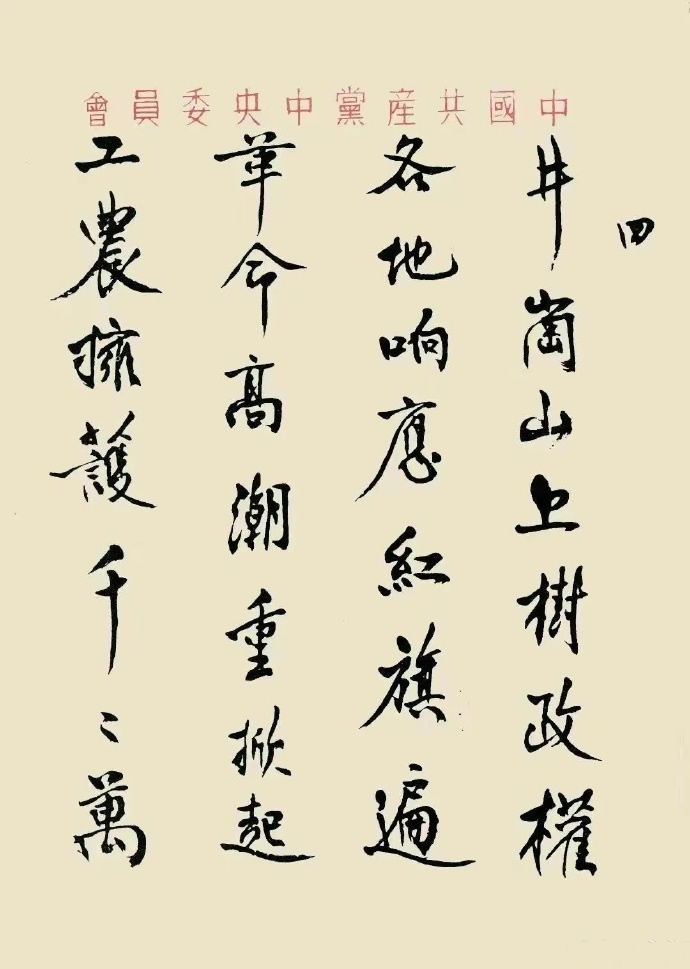 中國共産黨中央委員會
四
井崗山上樹政權
各地响應紅旗遍
革命高潮重掀起
工農擁護千〻萬